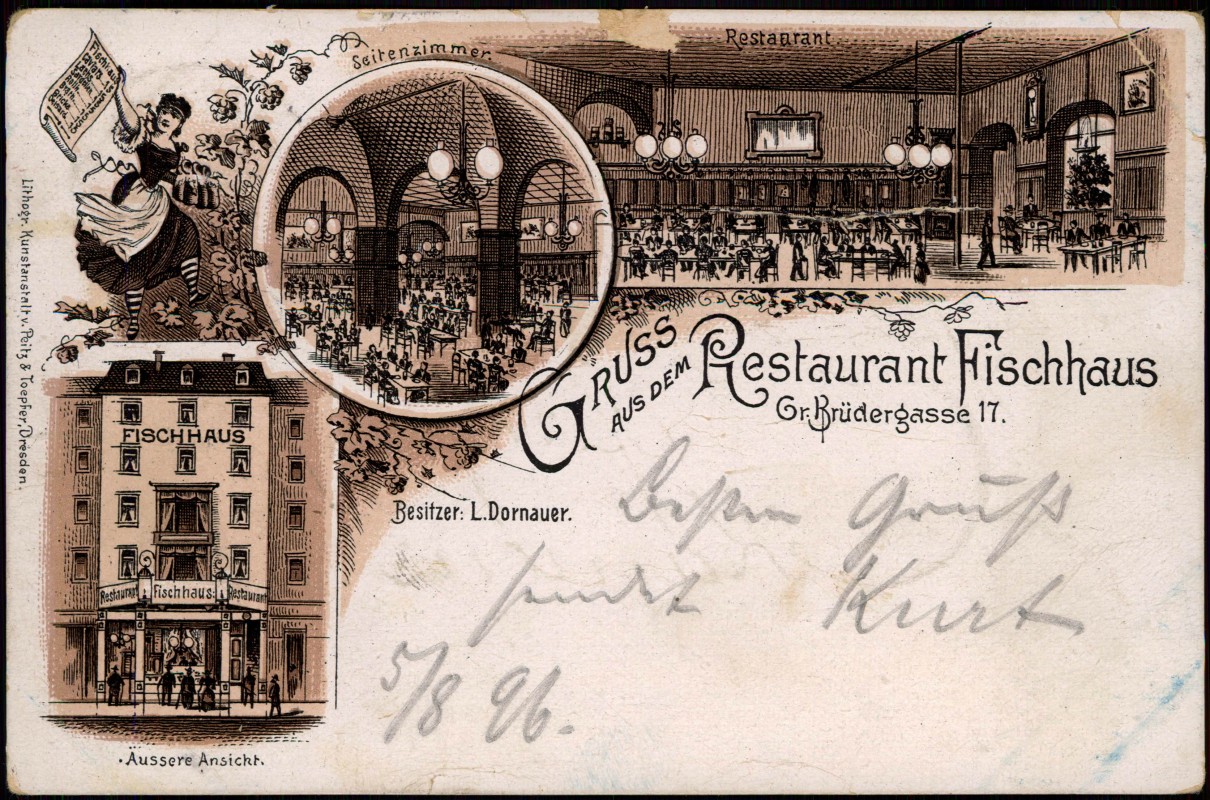 Seitenzimmer.
Restaurant
Fischhaus
Lithogr. Kunstanstalt v. Peitz & Toepfer, Dresden.
GRUSS
AUS DEM
Restaurant Fischhaus
Gr. Brüdergasse 17.
FISCHHAUS
Besitzer: L. Dornauer.
Besten Gruß
sendet Kurt
5/8 96.
Restaurant Fischhaus Restaurant
Äussere Ansicht.